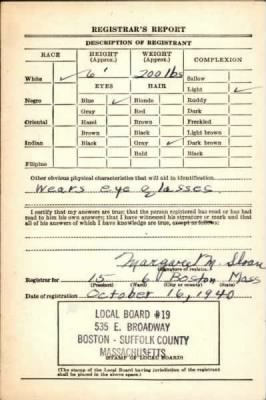 REGISTRAR'S REPORT
DESCRIPTION OF REGISTRANT
RACE HEIGHT (Approx.) WEIGHT (Approx.) COMPLEXION
White ✓ 6' 200 lbs Sallow
EYES HAIR Light ✓
Negro Blue ✓ Blonde Ruddy
Gray Red Dark
Oriental Hazel Brown Freckled
Brown Black Light brown
Indian Black Gray ✓ Dark brown
Bald Black
Filipino
Other obvious physical characteristics that will aid in identification
Wears eye glasses
I certify that my answers are true; that the person registered has read or has had
read to him his own answers; that I have witnessed his signature or mark and that
all of his answers of which I have knowledge are true, except as follows:
Margaret M. Sloan
(Signature of registrar)
Registrar for 15 6 Boston Mass
(Precinct) (Ward) (City or county) (State)
Date of registration October 16, 1940
LOCAL BOARD #19
535 E. BROADWAY
BOSTON - SUFFOLK COUNTY
MASSACHUSETTS
(STAMP OF LOCAL BOARD)
(The stamp of the Local Board having jurisdiction of the registrant
shall be placed in the above space.)